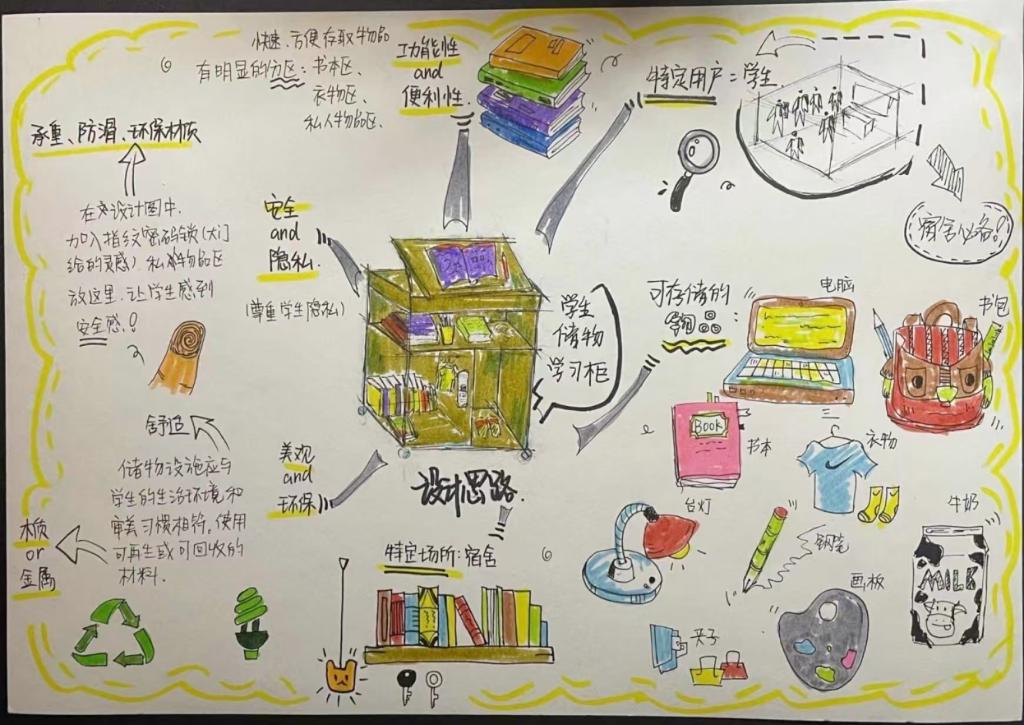 快速、方便存取物品
有明显的分区：书本区、
衣物区、
私人物品区、
功能性
and
便利性.
特定用户：学生
宿舍必备!
承重、防滑、环保材质
在设计图中,
加入指纹密码锁(大门
给的灵感) 私人物品区
放这里,让学生感到
安全感!
安全
and
隐私.
(尊重学生隐私)
学生
储物
学习柜
可存储的
物品:
电脑
书包
BOOK
书本
衣物
台灯
钢笔
牛奶
MILK
画板
夹子
舒适
储物设施应与
学生的生活环境和
审美习惯相符,使用
可再生或可回收的
材料.
木质
or
金属
美观
and
环保
设计思路.
特定场所:宿舍